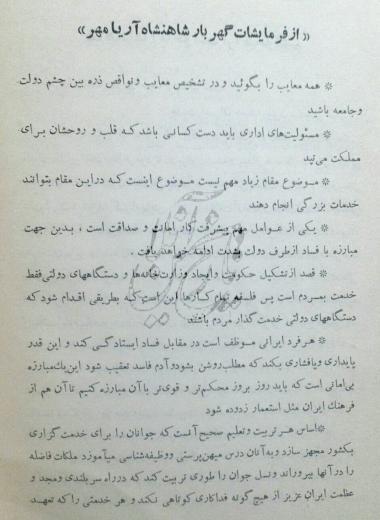 «از فرمایشات گهربار شاهنشاه آریا مهر»
* همه معایب را بگوئید و در تشخیص معایب و نواقص ذره بین چشم دولت
و جامعه باشید
* مسئولیت‌های اداری باید دست کسانی باشد که قلب و روحشان برای
مملکت می‌تپد
* موضوع مقام زیاد مهم نیست موضوع اینست که در این مقام بتوانند
خدمات بزرگی انجام دهند
* یکی از عوامل مهم پیشرفت کار امانت و صداقت است ، بدین جهت
مبارزه با فساد از طرف دولت بشدت ادامه خواهد یافت .
* قصد از تشکیل حکومت و ایجاد وزارت‌خانه‌ها و دستگاههای دولتی فقط
خدمت بمردم است پس فلسفه تمام کارها این است که بطریقی اقدام شود که
دستگاههای دولتی خدمت گذار مردم باشند
* هر فرد ایرانی موظف است در مقابل فساد ایستادگی کند و این قدر
پایداری و پافشاری بکند که مطلب روشن بشود و آدم فاسد تعقیب شود این یک مبارزه
بی‌امانی است که باید روز بروز محکم‌تر و قوی‌تر با آن مبارزه کنیم تا آن هم از
فرهنگ ایران مثل استعمار زدوده شود
* اساس هر تربیت و تعلیم صحیح آنست که جوانان را برای خدمت گزاری
بکشور مجهز سازد و به آنان درس میهن‌پرستی و وظیفه‌شناسی میآموزد ملکات فاضله
را در آنها بپروراند و نسل جوان را طوری تربیت کند که در راه سربلندی و مجد و
عظمت ایران عزیز از هیچ گونه فداکاری کوتاهی نکند و هر خدمتی را که تعهد